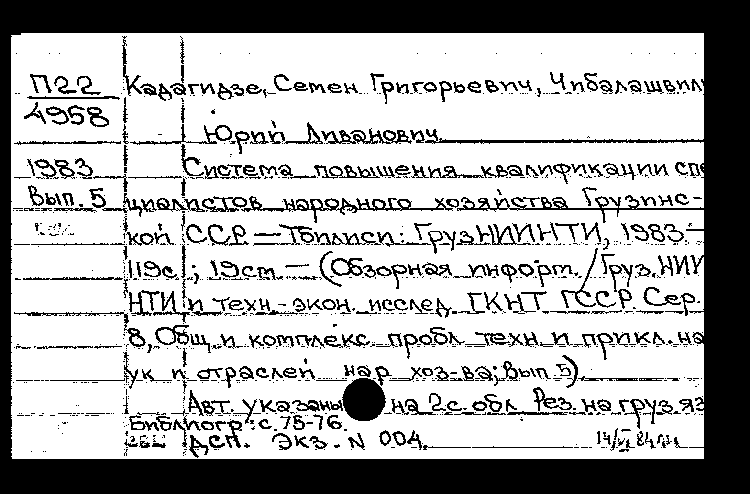 П22 Кадагидзе, Семен Григорьевич, Чибалашвил
4958
Юрий Ливанович
1983 Система повышения квалификации спе
Вып. 5 циалистов народного хозяйства Грузинс-
кой ССР. — Тбилиси: ГрузНИИНТИ, 1983 —
119с.; 19см. — (Обзорная информ. / Груз. НИИ
НТИ и техн.-экон. исслед. ГКНТ ГССР. Сер.
8, Общ. и комплекс. пробл. техн. и прикл. на
ук и отраслей нар. хоз-ва; Вып 5).
Авт. указаны на 2с. обл. Рез. на груз. яз
Библиогр.: с. 75-76.
ДСП. Экз. N 004.